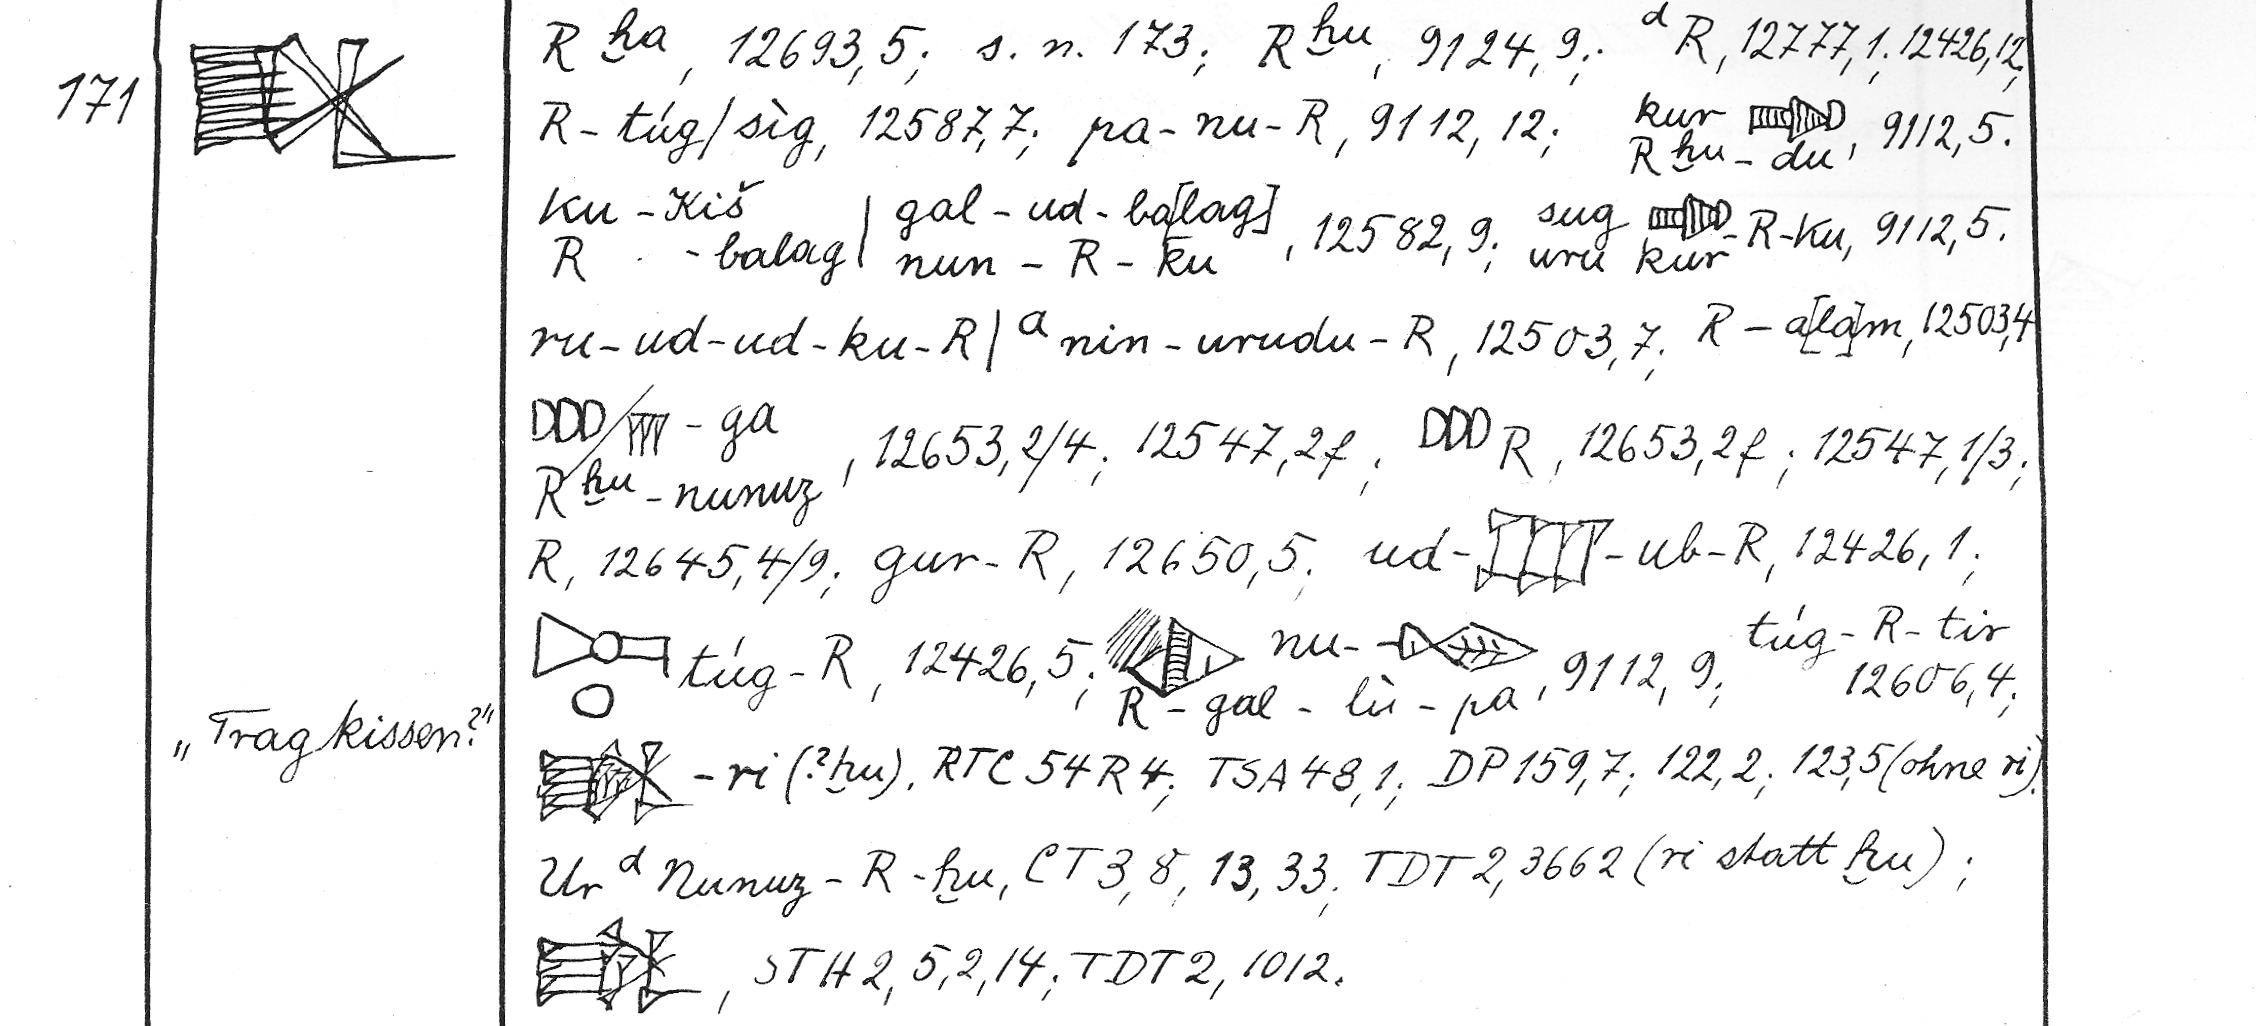 171
R ḫa, 12693,5; s. n. 173; R ḫu, 9124,9; ᵈ R, 12777,1; 12426,12;
R - túg/sìg, 12587,7; pa-nu-R, 9112,12; kur
R ḫu - du, 9112,5.
ku - Kiš gal - ud - ba[lag] sug
R - balag | nun - R - ku, 12582,9; uru kur - R-ku, 9112,5.
ru-ud-ud-ku-R | ᵃ nin-urudu-R, 12503,7; R - a[la]m, 12503,4
DDD/ - ga
R ḫu - nunuz, 12653,2/4; 12547,2f; DDD R, 12653,2f; 12547,1/3;
R, 12645,4/9; gur-R, 12650,5; ud- -ub-R, 12426,1;
túg-R, 12426,5; nu- túg-R-tir
R - gal - lù - pa, 9112,9; 12606,4;
„Tragkissen?"
-ri (?ḫu). RTC 54 R 4; TSA 48,1; DP 159,7; 122,2; 123,5 (ohne ri).
Ur ᵈ Nunuz - R - ḫu, CT 3,8,13,33; TDT 2,3662 (ri statt ḫu);
, STH 2,5,2,14; TDT 2, 1012.